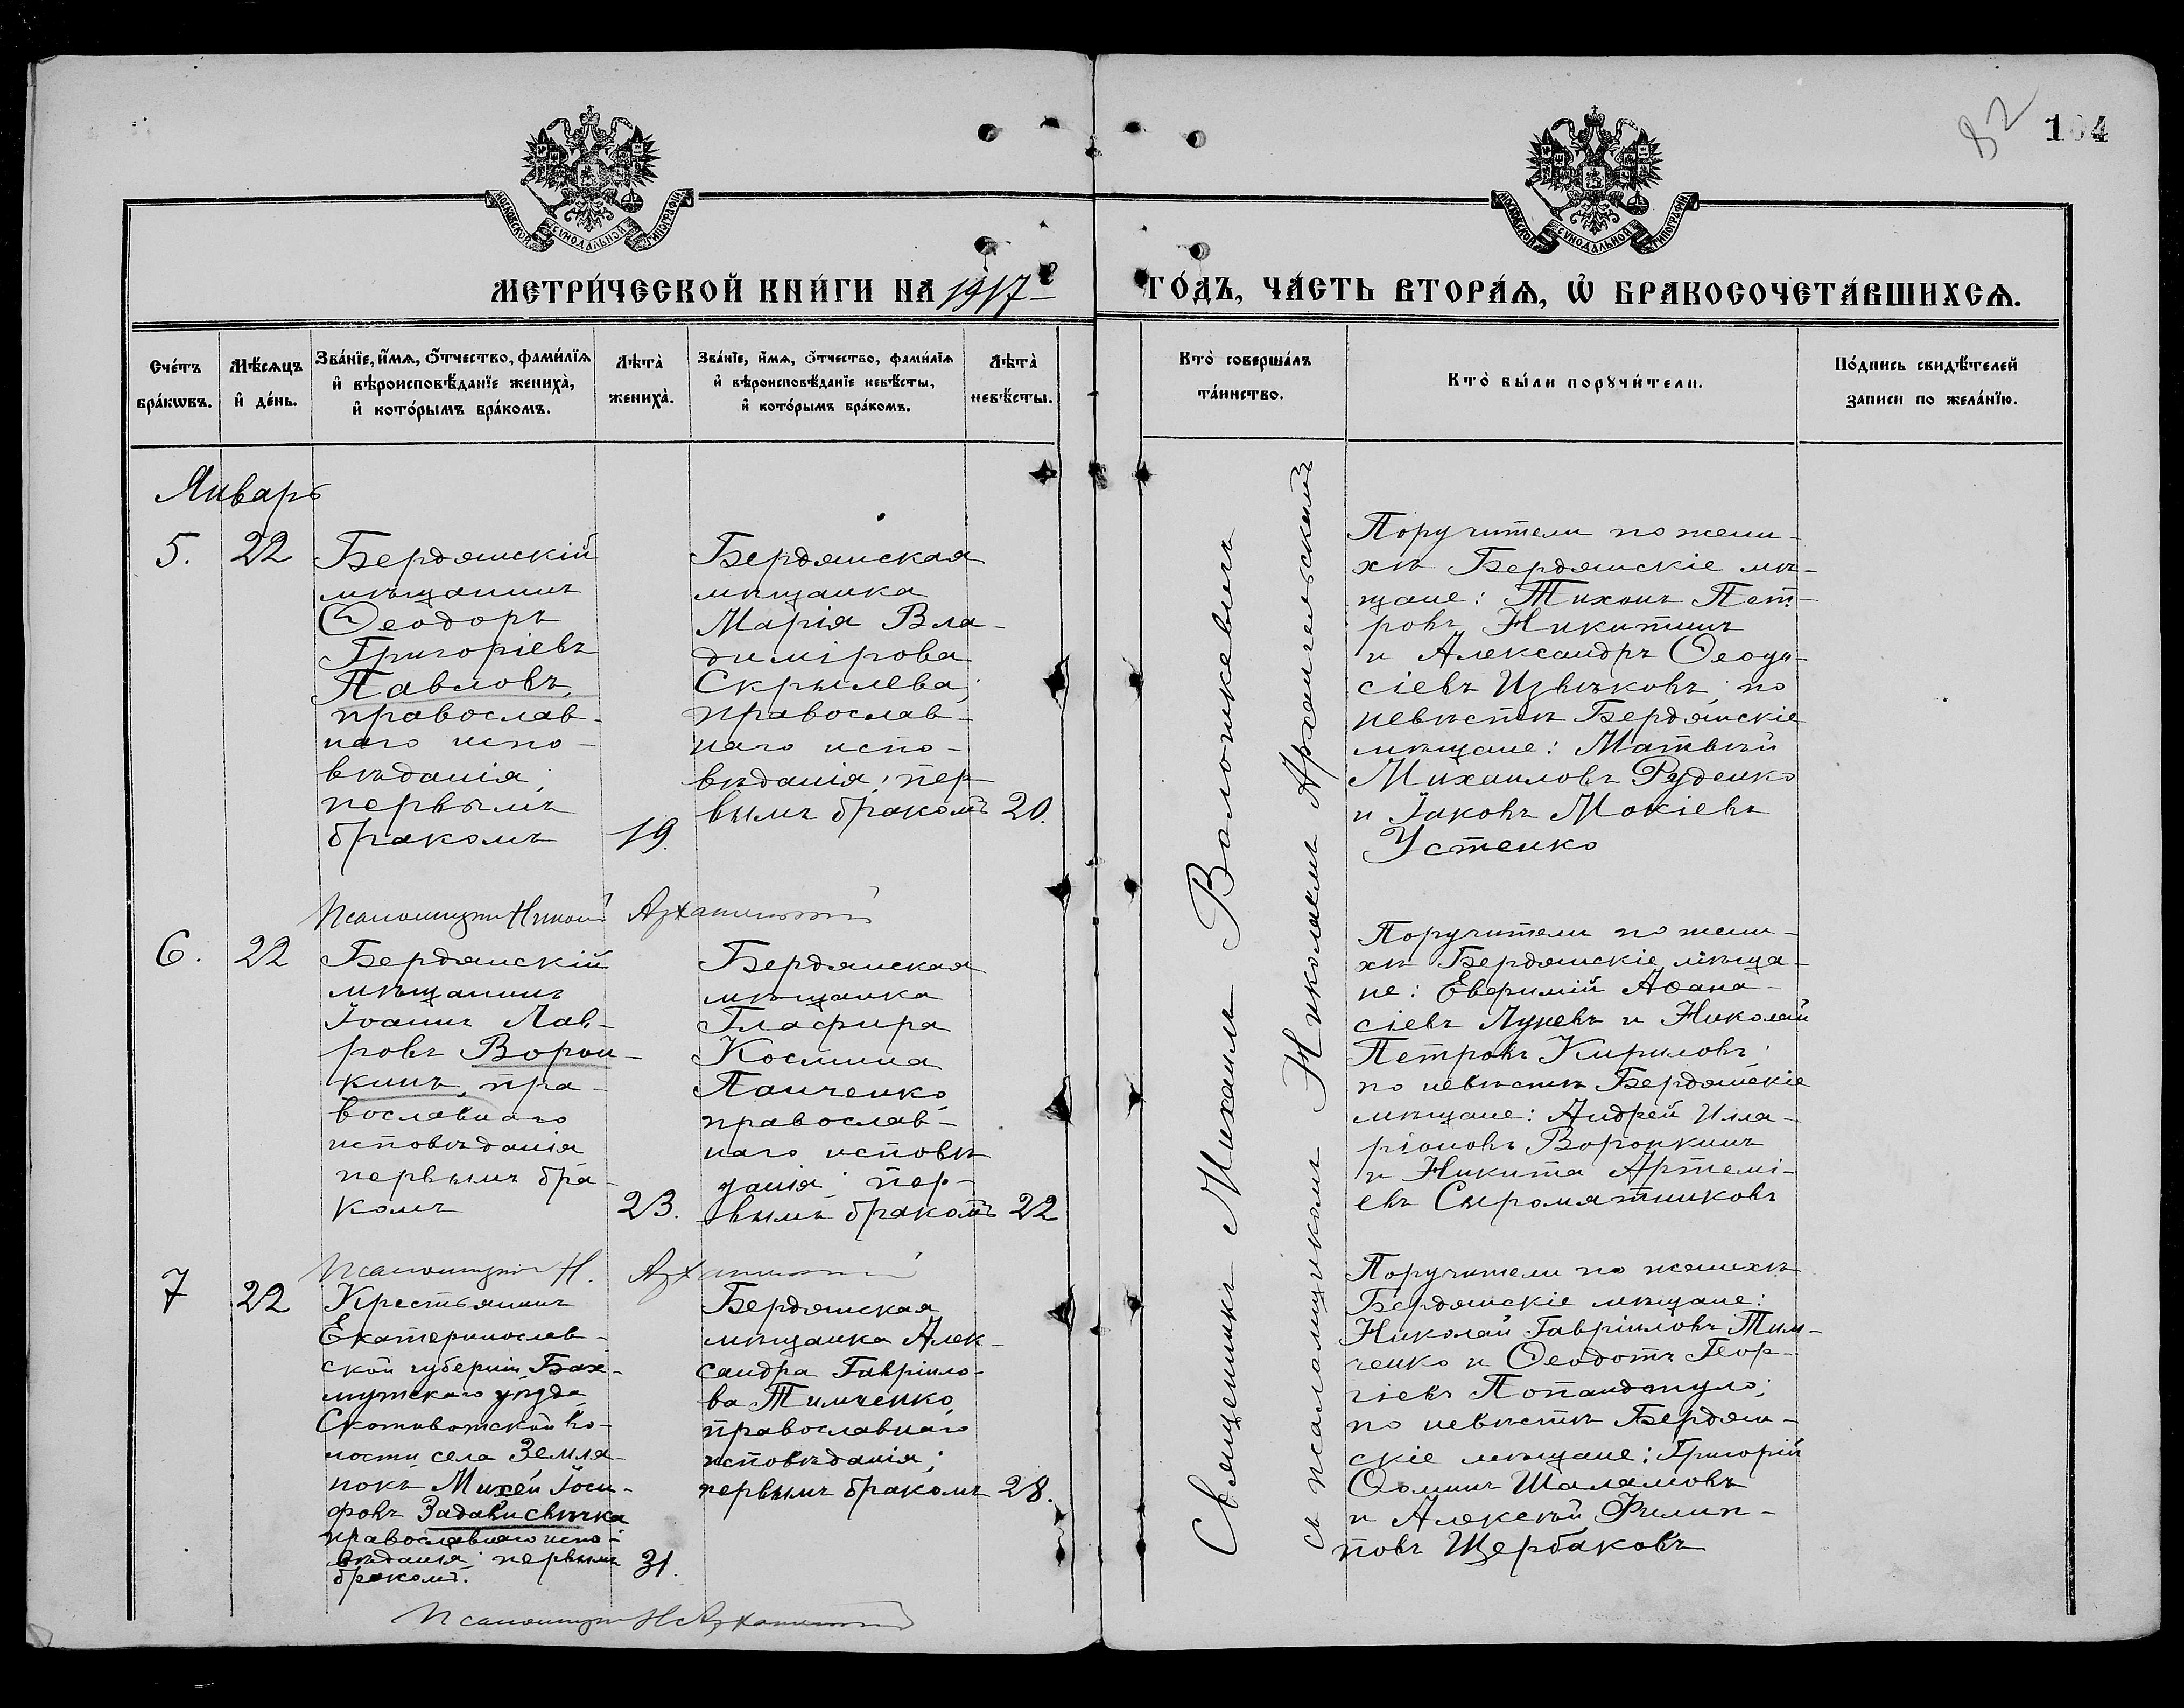 82
104
МОСКОВСКОЙ СУНОДАЛЬНОЙ ТИПОГРАФІИ
МОСКОВСКОЙ СУНОДАЛЬНОЙ ТИПОГРАФІИ
МЕТРИ́ЧЕСКОЙ КНИ́ГИ НА 1917 г
ГО́ДЪ, ЧА́СТЬ ВТОРА́Ѧ, Ѡ҆ БРАКОСОЧЕТА́ВШИХСѦ.
Сче́тъ
бра́кѡвъ.
Мѣ́сѧцъ
и҆ де́нь.
Зва́нїе, и҆́мѧ, ѻ҆́тчество, фами́лїѧ
и҆ вѣроисповѣ́данїе жениха̀,
и҆ кото́рымъ бра́комъ.
Лѣта̀
жениха̀.
Зва́нїе, и҆́мѧ, ѻ҆́тчество, фами́лїѧ
и҆ вѣроисповѣ́данїе невѣ́сты,
и҆ кото́рымъ бра́комъ.
Лѣта̀
невѣ́сты.
Кто̀ соверша́лъ
та́инство.
Кто̀ бы́ли порꙋчи́тели.
По́дпись свидѣ́телей
записи по жела́нїю.
Январь
5.
22
Бердянскій
мѣщанинъ
Ѳеодоръ
Григоріевъ
Павловъ,
православ-
наго испо-
вѣданія;
первымъ
бракомъ
19.
Бердянская
мѣщанка
Марія Вла-
димірова
Скрылева,
православ-
наго испо-
вѣданія; пер-
вымъ бракомъ
20.
Поручители по жени-
хѣ Бердянскіе мѣ-
щане: Тихонъ Пет-
ровъ Никитинъ
и Александръ Ѳеодо-
сіевъ Извѣковъ; по
невѣстѣ Бердянскіе
мѣщане: Матвѣй
Михаиловъ Руденко
и Іаковъ Мокіевъ
Устенко
Псаломщикъ Николай Архангельскій
6.
22
Бердянскій
мѣщанинъ
Іоаннъ Лав-
ровъ Ворон-
кинъ, пра-
вославнаго
исповѣданія
первымъ бра-
комъ
23.
Бердянская
мѣщанка
Глафира
Космина
Панченко,
православ-
наго исповѣ
данія; пер-
вымъ бракомъ
22
Поручители по жени-
хѣ Бердянскіе мѣща-
не: Евфимій Аѳана-
сіевъ Луневъ и Николай
Петровъ Кириловъ;
по невѣстѣ Бердянскіе
мѣщане: Андрей Ила-
ріоновъ Воронкинъ
и Никита Артемі-
евъ Сыромятниковъ
Псаломщикъ Н. Архангельскій
7
22
Крестьянинъ
Екатеринослав-
ской губерніи, Бах-
мутскаго уѣзда
Скотоватской во-
лости села Земля-
нокъ Михей Іоси-
фовъ Задависвѣчка
православнаго испо-
вѣданія; первымъ
бракомъ.
31.
Бердянская
мѣщанка Алек-
сандра Гавріило-
ва Тимченко,
православнаго
исповѣданія;
первымъ бракомъ
28.
Поручители по женихѣ
Бердянскіе мѣщане:
Николай Гавріиловъ Тим-
ченко и Ѳеодотъ Геор-
гіевъ Попандопуло;
по невѣстѣ Бердян-
скіе мѣщане: Григорій
Ѳоминъ Шаламовъ
и Алексѣй Филип-
повъ Щербаковъ
Псаломщикъ Н Архангельскій
Священникъ Михаилъ Волошкевичъ
съ псаломщикомъ Николаемъ Архангельскимъ